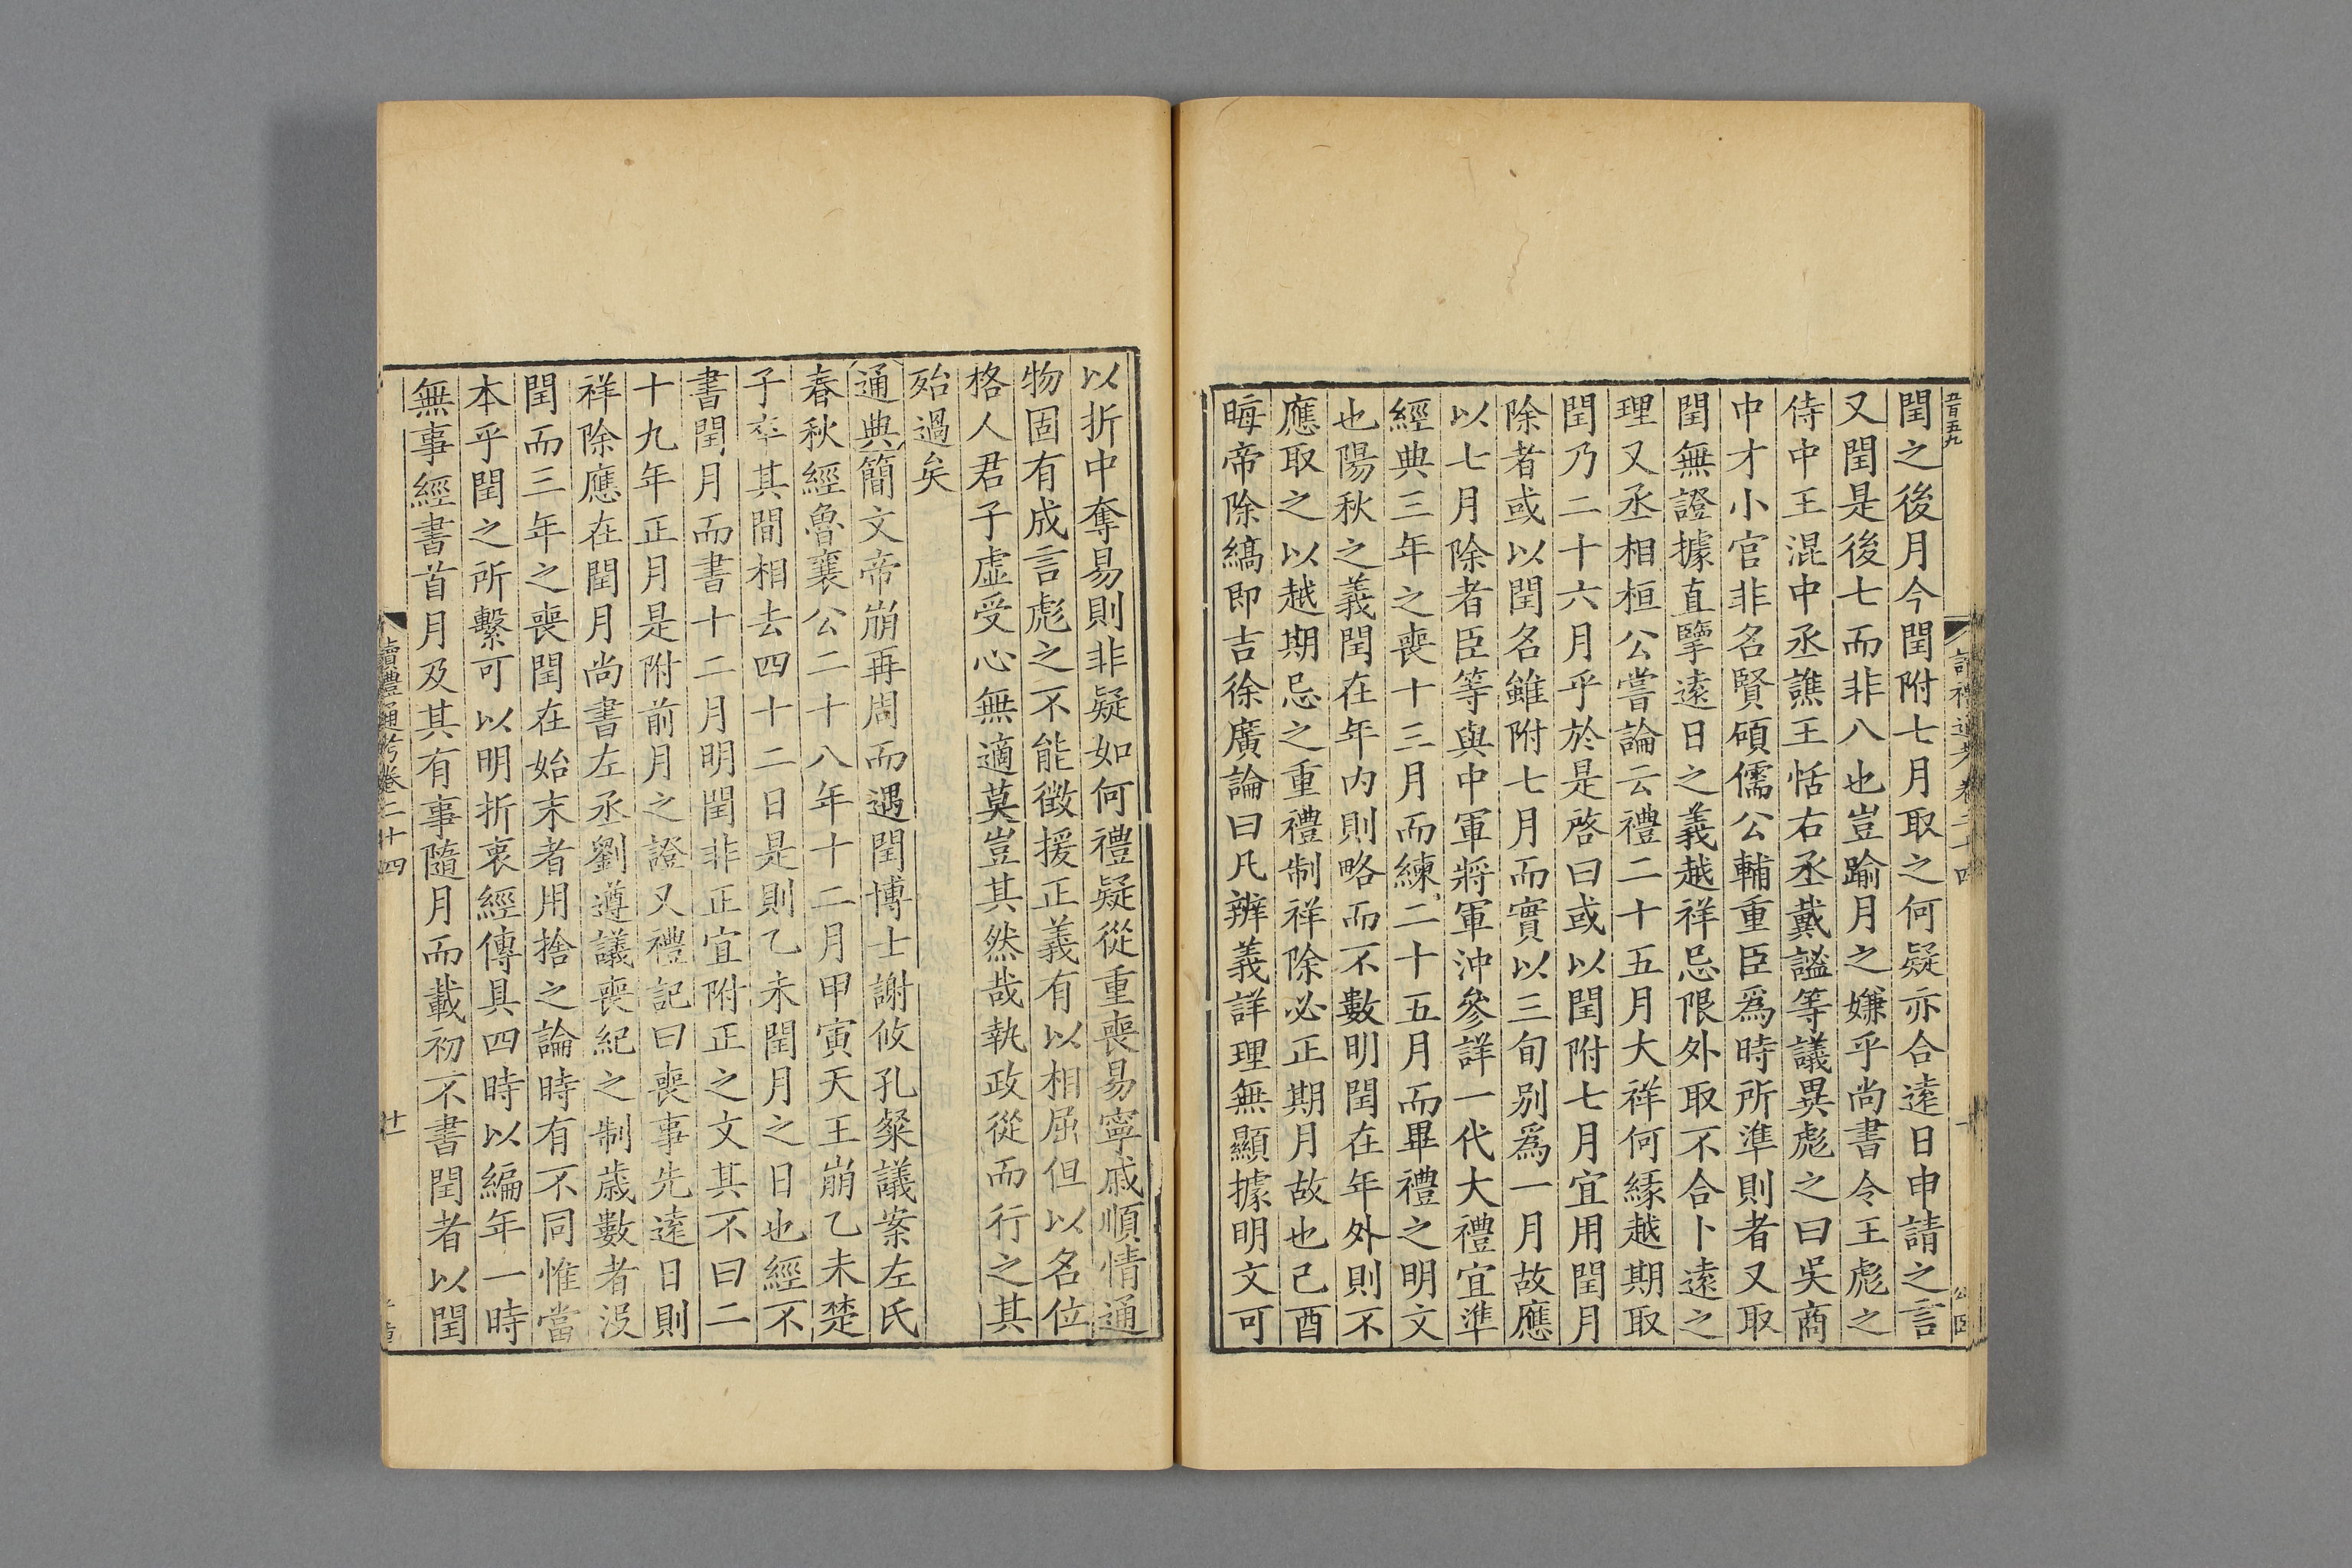 五百五九
閏之後月今閏附七月取之何疑亦合遠日申請之言
又閏是後七而非八也豈踰月之嫌乎尚書令王彪之
侍中王混中丞譙王恬右丞戴謐等議異彪之曰吳商
中才小官非名賢碩儒公輔重臣爲時所準則者又取
閏無證據直擥遠日之義越祥忌限外取不合卜遠之
理又丞相桓公嘗論云禮二十五月大祥何緣越期取
閏乃二十六月乎於是啓曰或以閏附七月宜用閏月
除者或以閏名雖附七月而實以三旬别爲一月故應
以七月除者臣等與中軍將軍沖參詳一代大禮宜準
經典三年之喪十三月而練二十五月而畢禮之明文
也陽秋之義閏在年内則略而不數明閏在年外則不
應取之以越期忌之重禮制祥除必正期月故也己酉
晦帝除縞即吉徐廣論曰凡辨義詳理無顯據明文可
以折中奪易則非疑如何禮疑從重喪易寧戚順情通
物固有成言彪之不能徵援正義有以相屈但以名位
格人君子虛受心無適莫豈其然哉執政從而行之其
殆過矣
通典簡文帝崩再周而遇閏博士謝攸孔粲議案左氏
春秋經魯襄公二十八年十二月甲寅天王崩乙未楚
子卒其間相去四十二日是則乙未閏月之日也經不
書閏月而書十二月明閏非正宜附正之文其不曰二
十九年正月是附前月之證又禮記曰喪事先遠日則
祥除應在閏月尚書左丞劉遵議喪紀之制歲數者沒
閏而三年之喪閏在始末者用捨之論時有不同惟當
本乎閏之所繫可以明折衷經傳具四時以編年一時
無事經書首月及其有事隨月而載初不書閏者以閏
讀禮通考卷二十四
廿一